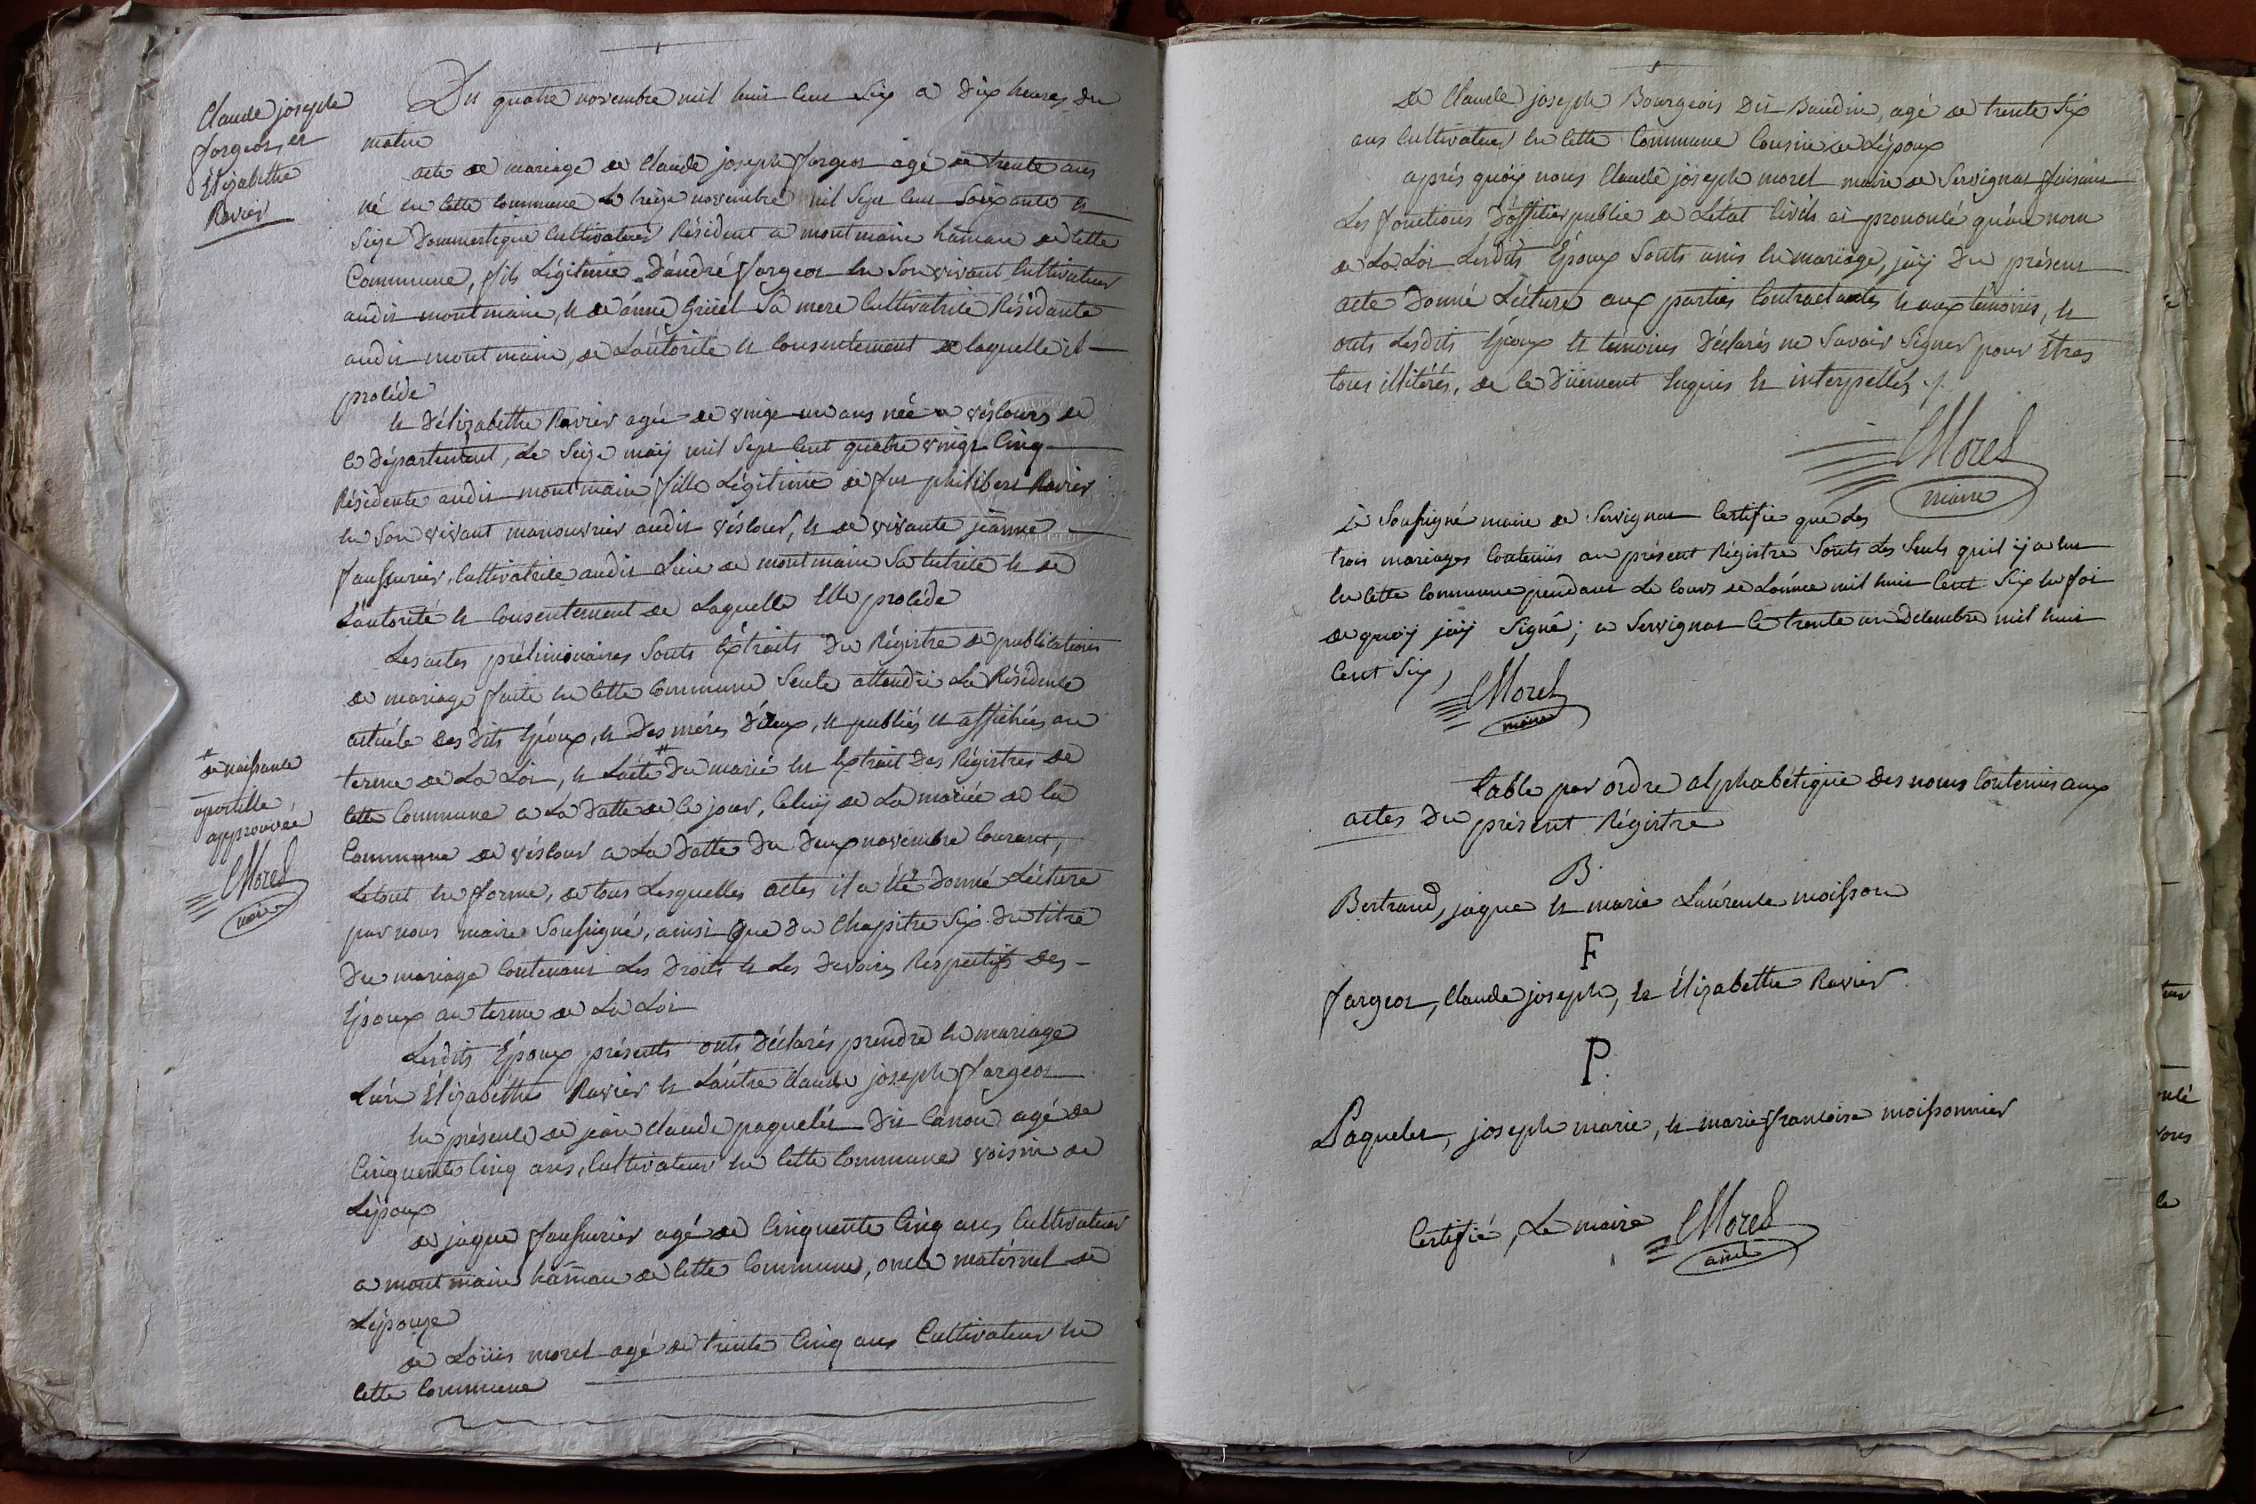 Claude joseph
fargeot, et
Elizabethe
Ravier
Du quatre novembre mil huit cent six a dix heures du
matin
acte de mariage de Claude joseph fargeot agé de trente ans
né en cette commune le treize novembre mil sept cent soixante et
seize Dommestique Cultivateur Résident a montmain hâmau de cette
Commune, fils Légitime D'andré fargeot en son vivant Cultivateur
audit montmain, et de ânne Gruel sa mere Cultivatrice Résidante
audit montmain, de Lautorité et Consentement de laquelle il
procéde
et D'élizabethe Ravier agée de vingt un ans née a véscours de
ce département, Le seize maÿ mil sept cent quatre vingt Cinq
Résidente audit montmain fille Légitime de fut philibert Ravier
en son vivant manouvrier audit véscour, et de vivante jeanne
faussurier, Cultivatrice audit Lieu de montmain sa tutrice et de
Lautorité et Consentement de Laquelle Elle procéde
Les actes préliminaires sonts Extraits du Régistre de publications
de mariage faite en cette commune seule attendu La Résidence
actuéle des dits Epoux, et des méres d'éux, et publiés et affichées au
terme de La Loi, et Lacte # du marié en Extrait des Régistres de
cette Commune a La datte de ce jour, Celuÿ de La mariée de la
Commune de véscour a La datte du deux novembre Courant,
Letout en forme, de tous Lesquelles actes il a été donné Lécture
par nous maire soussigné, ainsi que du Chapitre six du titre
du mariage Contenant Les droits et Les devoirs Respectifs des
Époux au terme de La Loi
# de naissance
apostille
approuvée
Morel
maire
Lesdits Époux présents onts déclarés prendre en mariage
L'un Elizabéthe Ravier et Lautre Claude joseph fargeot
en présence de jean Claude paquelet dit Canon agé de
Cinquente Cinq ans, Cultivateur en cette Commune voisin de
Lépoux
de jaque faussurier agé de Cinquente Cinq ans Cultivateur
a montmain hâmau de cette Commune, oncle matérnel de
Lépouze
de Loüis morel agé de trente Cinq ans Cultivateur en
cette Commune
de Claude joseph Bourgeois dit Baudin, agé de trente six
ans Cultivateur en cette Commune Cousin de Lépoux
aprés quoÿ nous Claude joseph morel maire de Servignat faisant
Les fonctions d'officier public de Létat Civils ai prononcé qu'au nom
de La Loi Lesdits Époux sonts unis en mariage, jaÿ du présent
acte donné Lécture aux parties Contractantes et aux témoins, et
onts Lesdits Époux et témoins déclarés ne savoir signer pour étres
tous illitérés, de ce düement enquis et interpellés ./.
Morel
maire
Le soussigné maire de Servignat Certifie que Les
trois mariages Contenus au présent Régistre sonts Les seuls quil ÿ a eu
en cette commune pendant Le cours de Lánnée mil huit cent six en foi
de quoÿ jáÿ signé; a Servignat Le trente un Décembre mil huit
cent six,
Morel
maire
table par ordre alphabétique des noms Contenus aux
actes du présent Régistre
B.
Bertrand, jaque et marie Laurence moisson
F
fargeot, Claude joseph, et Élizabethe Ravier
P.
Paquelet, joseph marie, et marie françoise moissonnier
Certifié, Le maire Morel
ainé